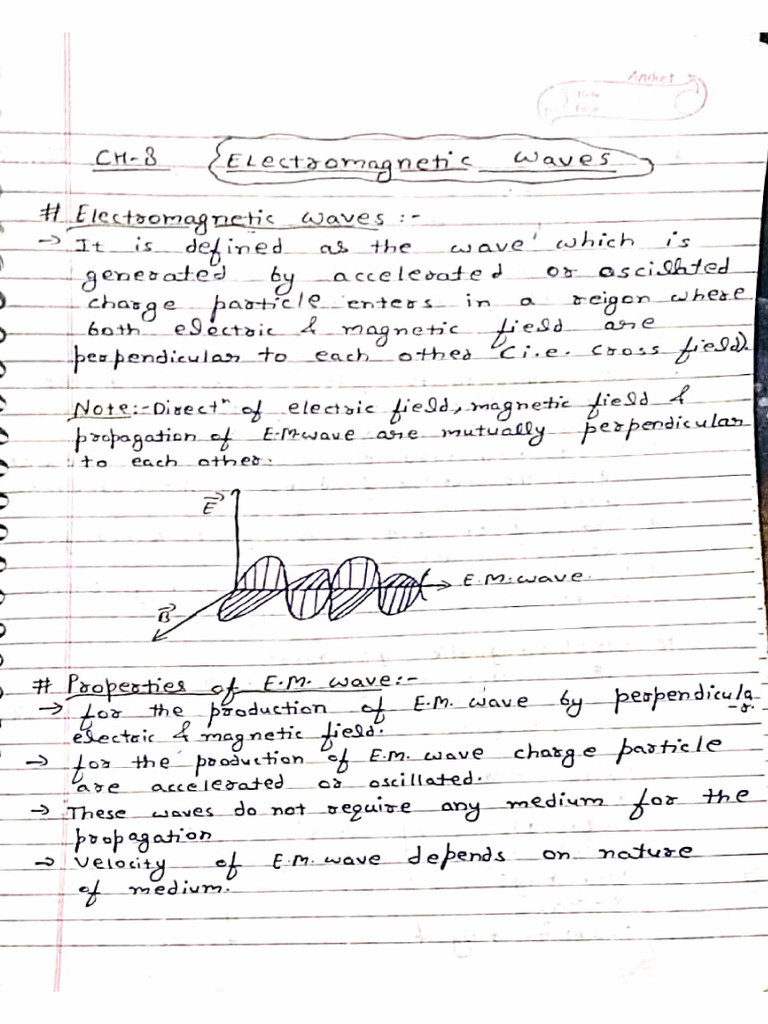 Aniket
CH-8 Electromagnetic Waves
# Electromagnetic waves :-
→ It is defined as the wave which is
generated by accelerated or oscillated
charge particle enters in a reigon where
both electric & magnetic field are
perpendicular to each other (i.e. cross field).
Note:- Directⁿ of electric field, magnetic field &
propagation of E.M wave are mutually perpendicular
to each other.
E⃗
→ E.M. wave.
B⃗
# Properties of E.M. wave :-
→ for the production of E.M. wave by perpendicula
-r.
electric & magnetic field.
→ for the production of E.M. wave charge particle
are accelerated or oscillated.
→ These waves do not require any medium for the
propagation
→ Velocity of E.M. wave depends on nature
of medium.